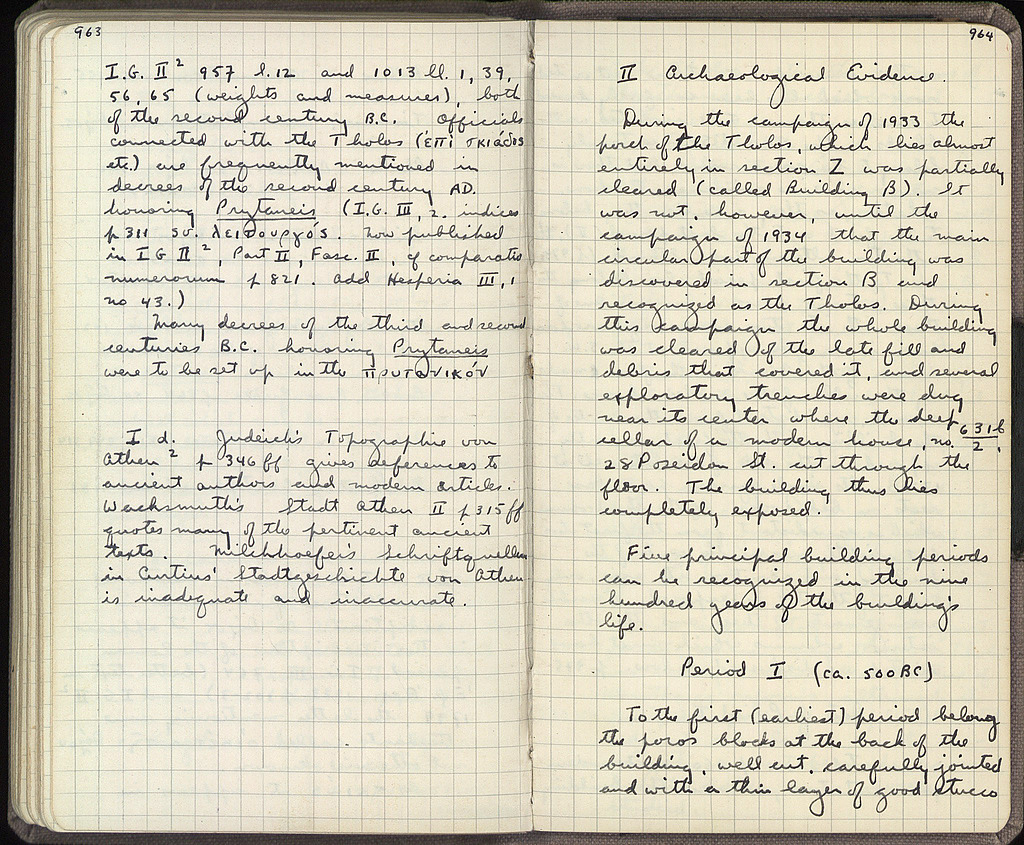 963
I.G. II² 957 l.12 and 1013 ll. 1, 39,
56, 65 (weights and measures), both
of the second century B.C. Officials
connected with the Tholos (ἐπὶ σκιάδος
etc.) are frequently mentioned in
decrees of the second century AD.
honoring Prytaneis (I.G. III, 2. indices
p 311 sv. λειτουργός. now published
in I G II², Part II, Fasc. II, cf comparatio
numerorum p 821. add Hesperia III, 1
no 43.)
Many decrees of the third and second
centuries B.C. honoring Prytaneis
were to be set up in the πρυτανικόν
I d. Judeich's Topographie von
Athen² p 346 ff gives references to
ancient authors and modern articles.
Wachsmuth's Stadt Athen II p 315 ff
quotes many of the pertinent ancient
texts. Milchhoefer's Schriftquellen
in Curtius' Stadtgeschichte von Athen
is inadequate and inaccurate.
964
II Archaeological Evidence.
During the campaign of 1933 the
porch of the Tholos, which lies almost
entirely in section Z was partially
cleared (called Building B). It
was not, however, until the
campaign of 1934 that the main
circular part of the building was
discovered in section B and
recognized as the Tholos. During
this campaign the whole building
was cleared of the late fill and
debris that covered it, and several
exploratory trenches were dug
near its center where the deep
cellar of a modern house, no. 631b/2,
28 Poseidon St. cut through the
floor. The building thus lies
completely exposed.
Five principal building periods
can be recognized in the nine
hundred years of the building's
life.
Period I (ca. 500 BC)
To the first (earliest) period belong
the poros blocks at the back of the
building, well cut, carefully jointed
and with a thin layer of good stucco